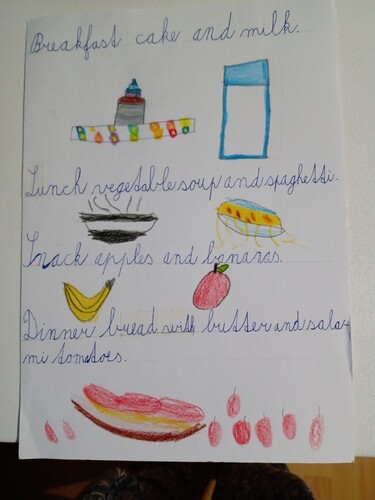 Breakfast cake and milk.
Lunch vegetable soup and spaghetti.
Snack apples and bananas.
Dinner bread with butter and sala-
mi tomatoes.